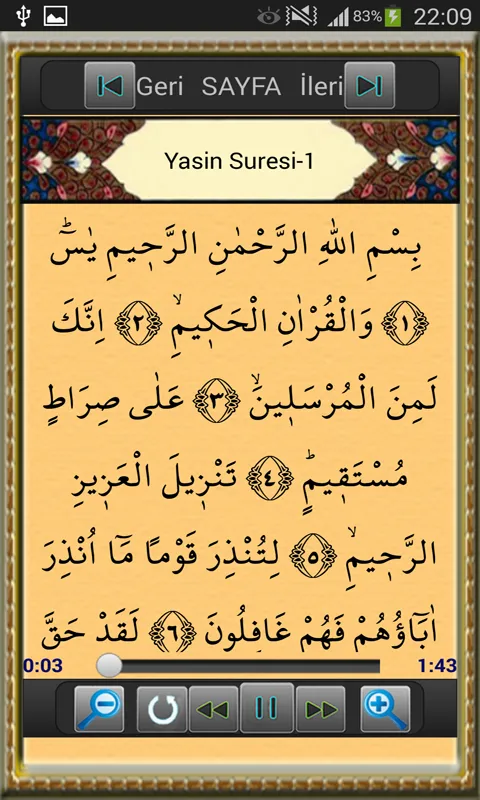 83% 22:09
Geri SAYFA İleri
Yasin Suresi-1
بِسْمِ اللهِ الرَّحْمٰنِ الرَّحٖيمِ يٰسٓ ؕ
﴿١﴾ وَالْقُرْاٰنِ الْحَكٖيمِ ۙ ﴿٢﴾ اِنَّكَ
لَمِنَ الْمُرْسَلٖينَ ۙ ﴿٣﴾ عَلٰى صِرَاطٍ
مُسْتَقٖيمٍ ؕ ﴿٤﴾ تَنْزٖيلَ الْعَزٖيزِ
الرَّحٖيمِ ۙ ﴿٥﴾ لِتُنْذِرَ قَوْمًا مَٓا اُنْذِرَ
اٰبَٓاؤُهُمْ فَهُمْ غَافِلُونَ ﴿٦﴾ لَقَدْ حَقَّ
0:03 1:43